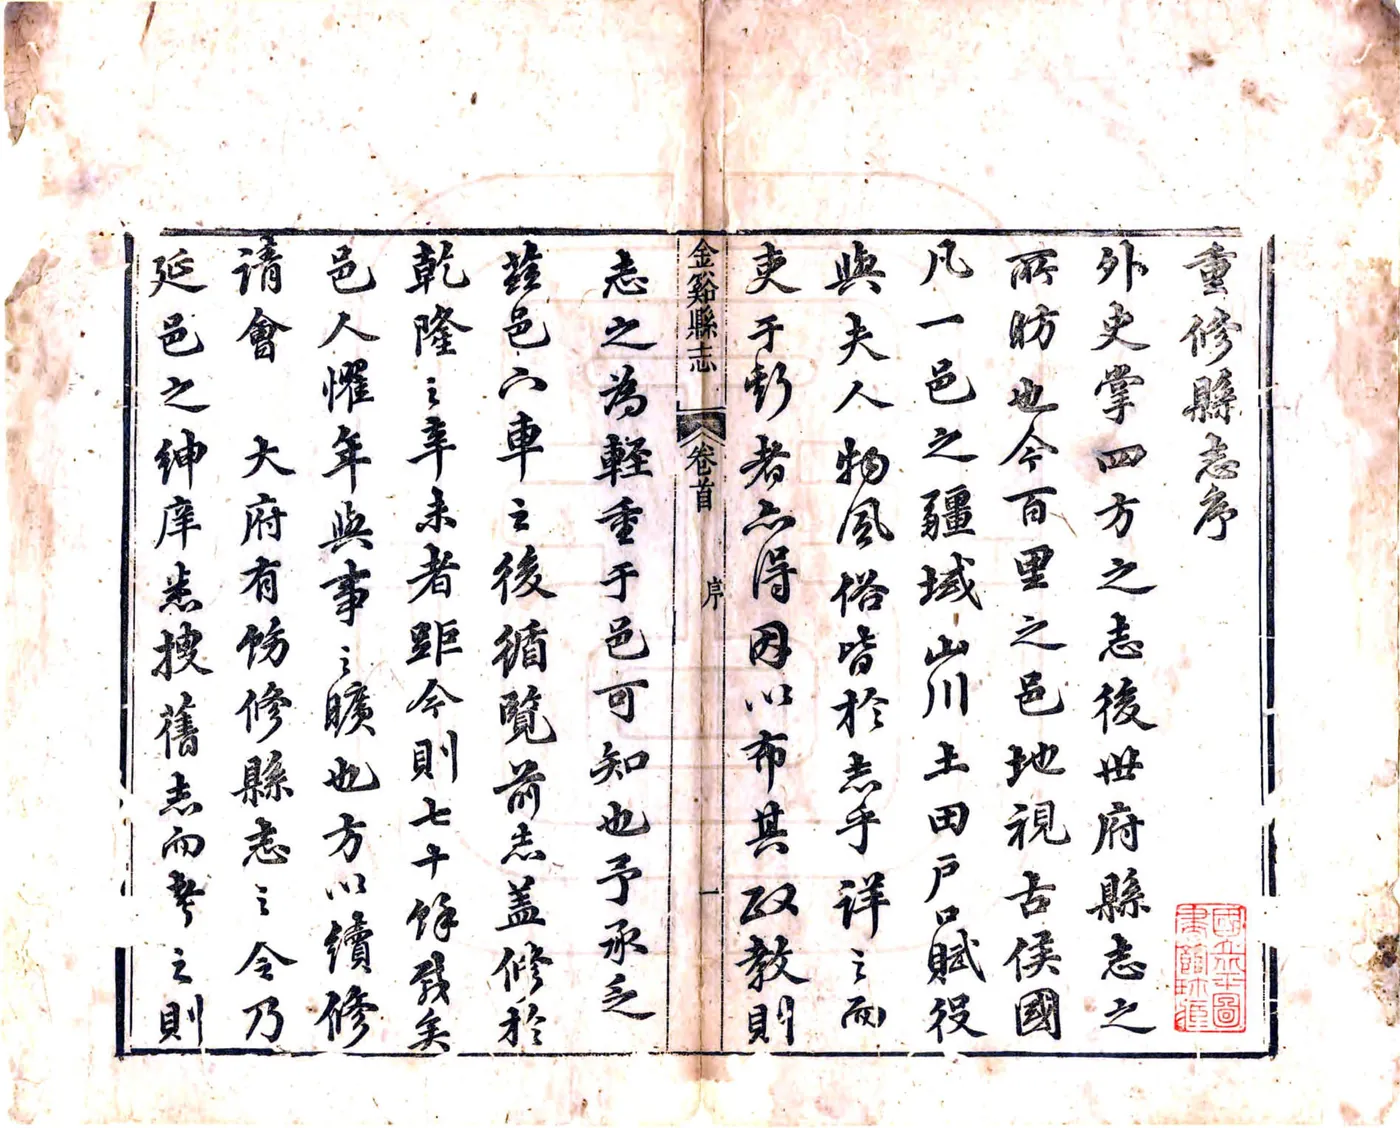 重修縣志序
外史掌四方之志後世府縣志之
所昉也今百里之邑地視古侯國
凡一邑之疆域山川土田戶口賦役
與夫人物風俗皆於志乎詳之而
吏于斯者亦得因以布其政教則
金谿縣志
卷首
序
一
志之為輕重于邑可知也予承乏
茲邑下車之後循覽前志蓋修於
乾隆之辛未者距今則七十餘載矣
邑人懼年與事之曠也方以續修
請會 大府有飭修縣志之令乃
延邑之紳庠悉搜舊志而考之則
國立北平圖
書館珍藏